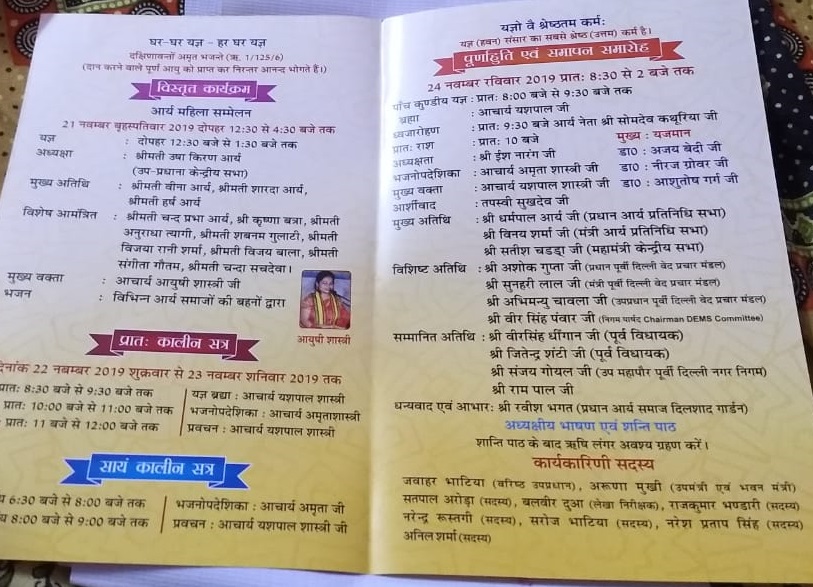 घर-घर यज्ञ - हर घर यज्ञ
दक्षिणावन्तो अमृत भजन्ते (ऋ. 1/125/6)
(दान करने वाले पूर्ण आयु को प्राप्त कर निरन्तर आनन्द भोगते हैं।)
विस्तृत कार्यक्रम
आर्य महिला सम्मेलन
21 नवम्बर बृहस्पतिवार 2019 दोपहर 12:30 से 4:30 बजे तक
यज्ञ : दोपहर 12:30 बजे से 1:30 बजे तक
अध्यक्षा : श्रीमती उषा किरण आर्य
(उप-प्रधाना केन्द्रीय सभा)
मुख्य अतिथि : श्रीमती वीना आर्य, श्रीमती शारदा आर्य,
श्रीमती हर्ष आर्य
विशेष आमंत्रित : श्रीमती चन्द्र प्रभा आर्य, श्री कृष्णा बत्रा, श्रीमती
अनुराधा त्यागी, श्रीमती शबनम गुलाटी, श्रीमती
विजया रानी शर्मा, श्रीमती विजय बाला, श्रीमती
संगीता गौतम, श्रीमती चन्दा सचदेवा।
मुख्य वक्ता : आचार्य आयुषी शास्त्री जी
भजन : विभिन्न आर्य समाजों की बहनों द्वारा
आयुषी शास्त्री
प्रातः कालीन सत्र
दिनांक 22 नवम्बर 2019 शुक्रवार से 23 नवम्बर शनिवार 2019 तक
प्रातः 8:30 बजे से 9:30 बजे तक यज्ञ ब्रह्मा : आचार्य यशपाल शास्त्री
प्रातः 10:00 बजे से 11:00 बजे तक भजनोपदेशिका : आचार्य अमृताशास्त्री
प्रातः 11 बजे से 12:00 बजे तक प्रवचन : आचार्य यशपाल शास्त्री
सायं कालीन सत्र
6:30 बजे से 8:00 बजे तक भजनोपदेशिका : आचार्य अमृता जी
8:00 बजे से 9:00 बजे तक प्रवचन : आचार्य यशपाल शास्त्री जी
यज्ञो वै श्रेष्ठतम कर्मः
यज्ञ (हवन) संसार का सबसे श्रेष्ठ (उत्तम) कर्म है।
पूर्णाहुति एवं समापन समारोह
24 नवम्बर रविवार 2019 प्रातः 8:30 से 2 बजे तक
पाँच कुण्डीय यज्ञ : प्रातः 8:00 बजे से 9:30 बजे तक
ब्रह्मा : आचार्य यशपाल जी
ध्वजारोहण : प्रातः 9:30 बजे आर्य नेता श्री सोमदेव कथूरिया जी
प्रातः राश : प्रातः 10 बजे मुख्य : यजमान
अध्यक्षता : श्री ईश नारंग जी डा० : अजय बेदी जी
भजनोपदेशिका : आचार्य अमृता शास्त्री जी डा० : नीरज ग्रोवर जी
मुख्य वक्ता : आचार्य यशपाल शास्त्री जी डा० : आशुतोष गर्ग जी
आर्शीवाद : तपस्वी सुखदेव जी
मुख्य अतिथि : श्री धर्मपाल आर्य जी (प्रधान आर्य प्रतिनिधि सभा)
श्री विनय शर्मा जी (मंत्री आर्य प्रतिनिधि सभा)
श्री सतीश चड्डा जी (महामंत्री केन्द्रीय सभा)
विशिष्ट अतिथि : श्री अशोक गुप्ता जी (प्रधान पूर्वी दिल्ली वेद प्रचार मंडल)
श्री सुनहरी लाल जी (मंत्री पूर्वी दिल्ली वेद प्रचार मंडल)
श्री अभिमन्यु चावला जी (उपप्रधान पूर्वी दिल्ली वेद प्रचार मंडल)
श्री वीर सिंह पंवार जी (निगम पार्षद Chairman DEMS Committee)
सम्मानित अतिथि : श्री वीरसिंह धींगान जी (पूर्व विधायक)
श्री जितेन्द्र शंटी जी (पूर्व विधायक)
श्री संजय गोयल जी (उप महापौर पूर्वी दिल्ली नगर निगम)
श्री राम पाल जी
धन्यवाद एवं आभार: श्री रवीश भगत (प्रधान आर्य समाज दिलशाद गार्डन)
अध्यक्षीय भाषण एवं शन्ति पाठ
शान्ति पाठ के बाद ऋषि लंगर अवश्य ग्रहण करें।
कार्यकारिणी सदस्य
जवाहर भाटिया (वरिष्ठ उपप्रधान), अरूणा मुखी (उपमंत्री एवं भवन मंत्री)
सतपाल अरोड़ा (सदस्य), बलवीर दुआ (लेखा निरीक्षक), राजकुमार भण्डारी (सदस्य)
नरेन्द्र रूस्तगी (सदस्य), सरोज भाटिया (सदस्य), नरेश प्रताप सिंह (सदस्य)
अनिल शर्मा (सदस्य)